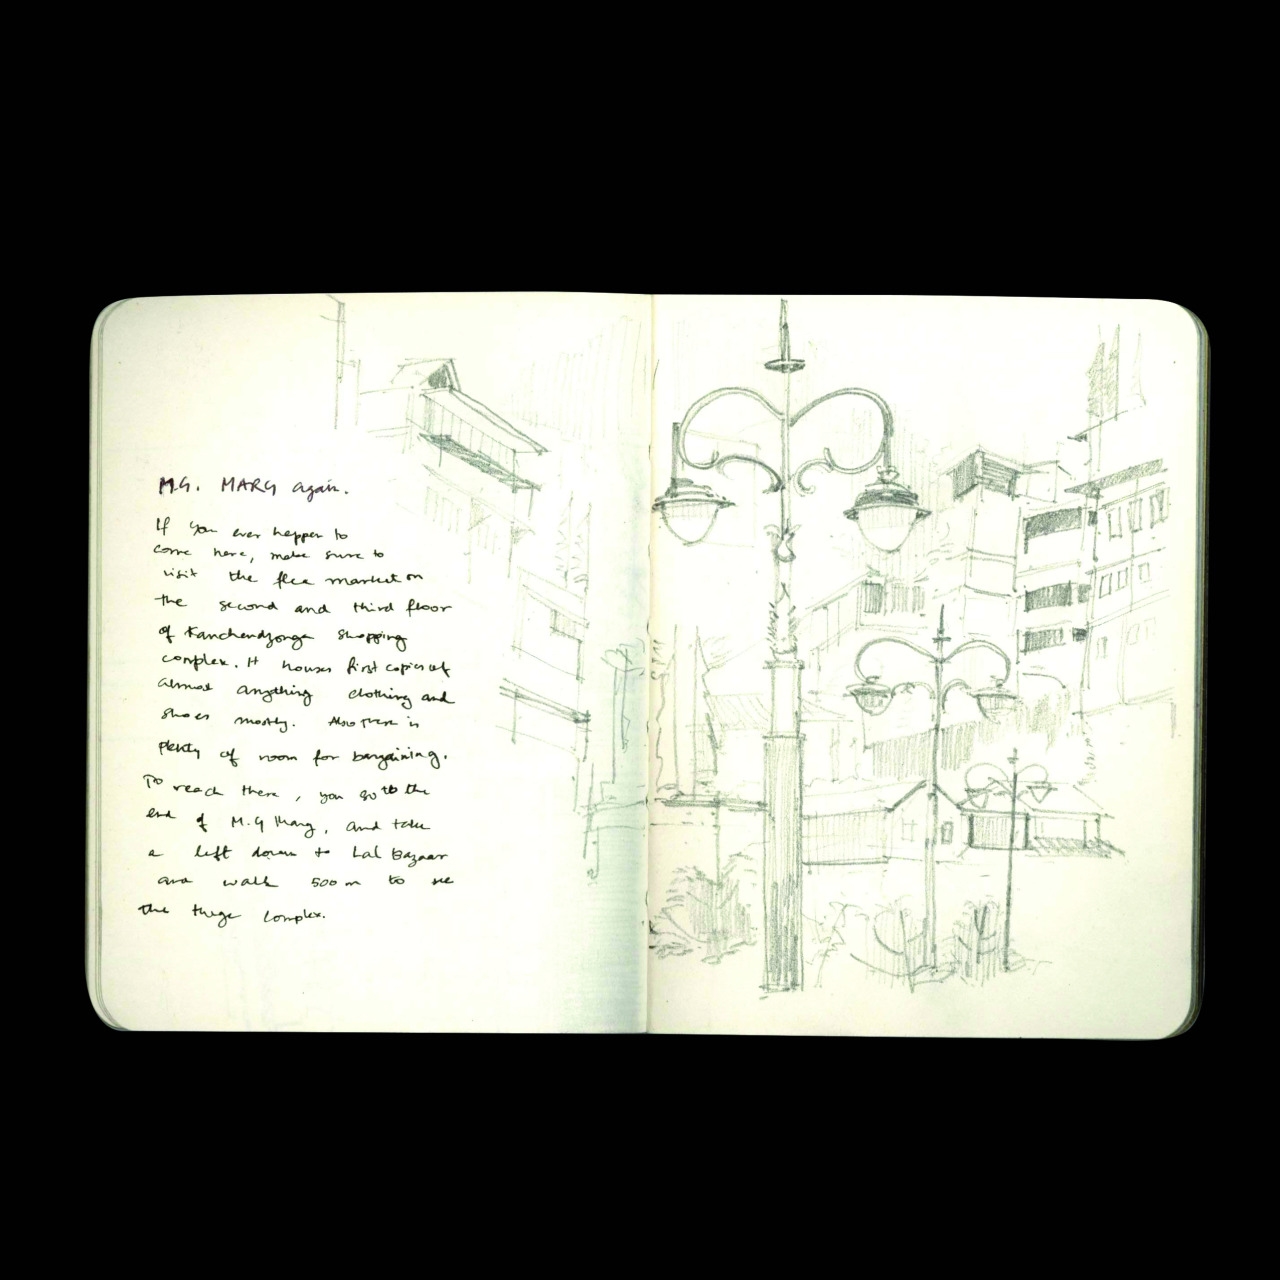 M.G. MARG again.
If you ever happen to
come here, make sure to
visit the flea market on
the second and third floor
of Kanchendzonga Shopping
complex. It houses first copies of
almost anything clothing and
shoes mostly. Also there is
plenty of room for bargaining.
To reach there, you go to the
end of M.G Marg, and take
a left down to Lal Bazaar
and walk 500 m to see
the huge complex.